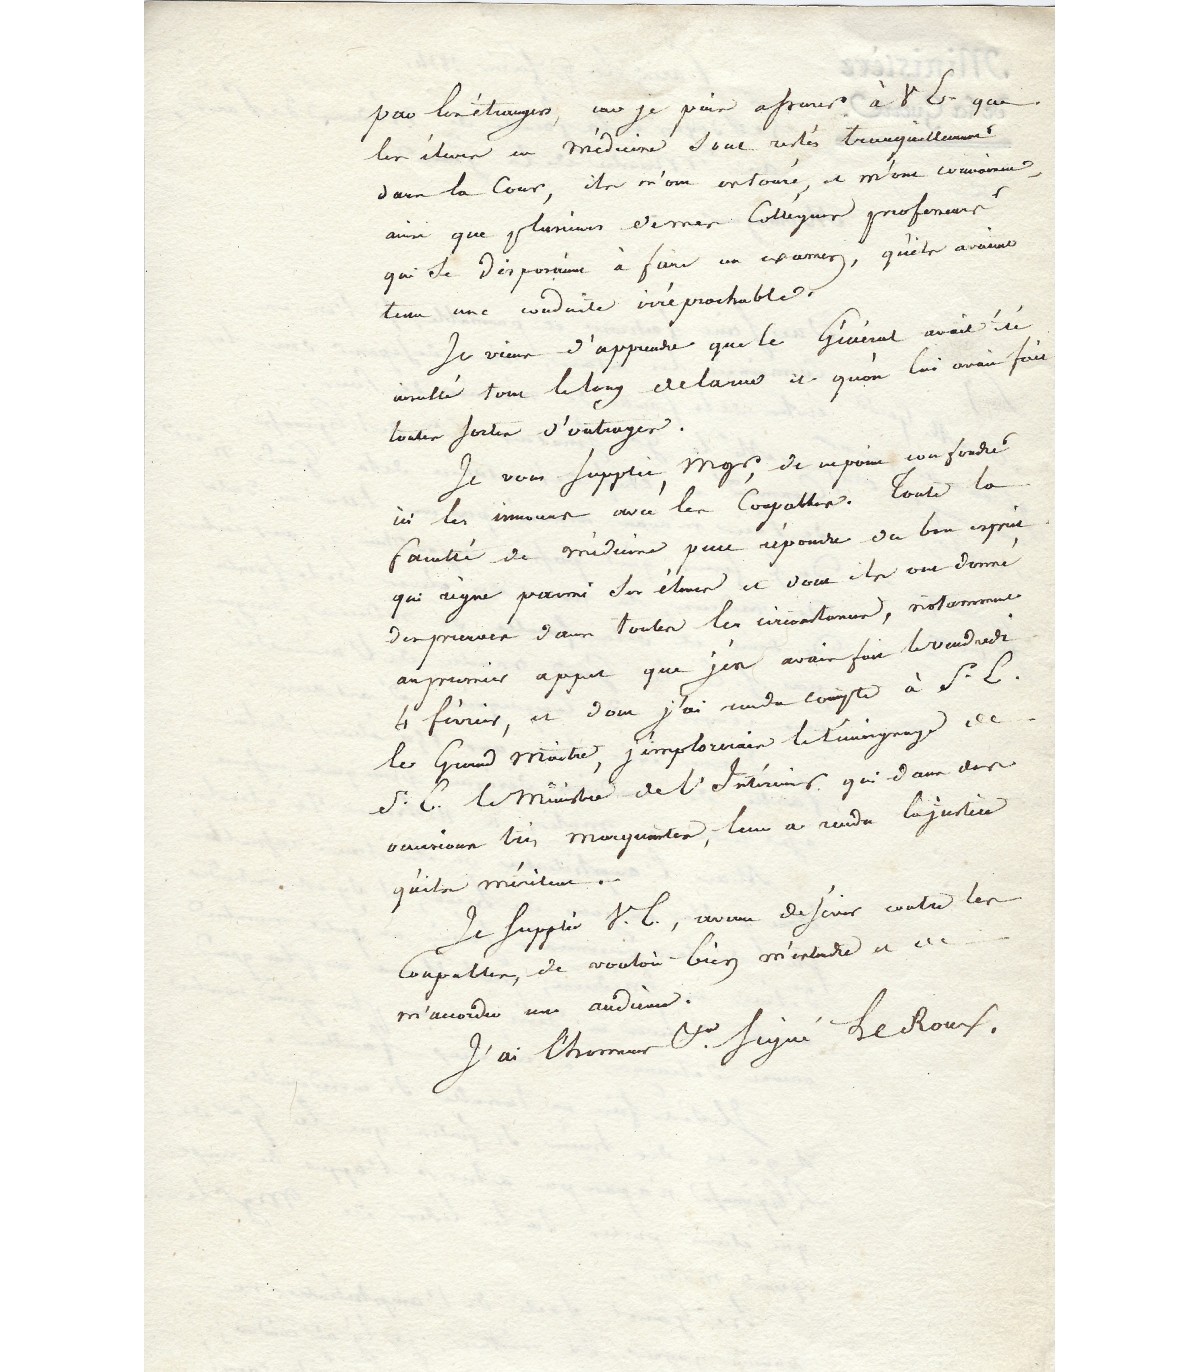 par les étrangers, car je puis assurer à V. E. que
les élèves en médecine sont restés tranquillement
dans la Cour, ils m'ont entouré, et m'ont convaincu,
ainsi que plusieurs de mes Collègues professeurs
qui se disposaient à faire un examen, qu'ils avaient
tenu une conduite irréprochable.
Je viens d'apprendre que le Général avait été
insulté tout le long de la rue et qu'on lui avait fait
toutes sortes d'outrages.
Je vous supplie, Mgr, de ne point confondre
ici les innocens avec les Coupables. Toute la
faculté de médecine peut répondre du bon esprit
qui règne parmi ses élèves et dont ils ont donné
des preuves dans toutes les circonstances, notamment
au premier appel que j'en avais fait le vendredi
4 février, et dont j'ai rendu compte à S. E.
le Grand Maître, j'implorerais le témoignage de
S. E. le Ministre de l'Intérieur qui dans des
occasions très marquantes, leur a rendu la justice
qu'ils méritent.
Je supplie V. E., avant de sévir contre les
Coupables, de vouloir bien m'entendre et de
m'accorder une audience.
J'ai l'honneur &a. Signé Le Roux.
Ministère